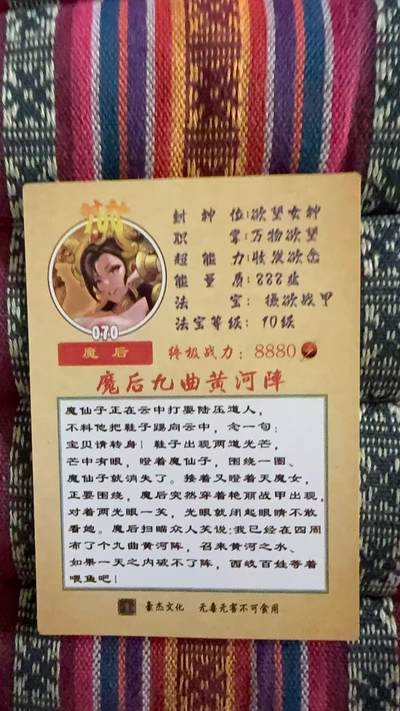 封神位:欲望女神
职掌:万物欲望
超能力:收发欲念
能量质:888兆
法宝:摄欲战甲
法宝等级:10级
070
魔后
终极战力:8880
魔后九曲黄河陣
魔仙子正在云中打耍陆压道人,
不料他把鞋子踢向云中,念一句:
宝贝请转身!鞋子出现两道光芒,
芒中有眼,瞪着魔仙子,围绕一圈、
魔仙子就消失了。接着又瞪着天魔女,
正要围绕,魔后突然穿着艳丽战甲出现,
对着两光眼一笑,光眼就闭起眼睛不敢
看她。魔后扫瞄众人笑说:我已经在四周
布了个九曲黄河阵,召来黄河之水、
如果一天之内破不了阵,西岐百姓等着
喂鱼吧!
豪杰文化 无毒无害不可食用